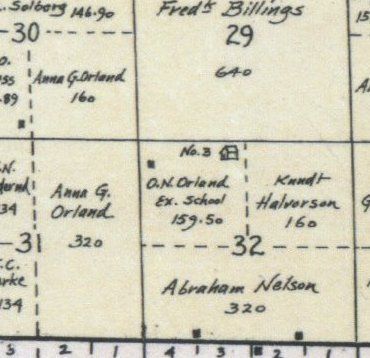 Solberg 146.90
30
Anna G. Orland
160
89
Fredk Billings
29
640
Anna G.
Orland
320
34
31
134
No. 3
O.N. Orland
Ex. School
159.50
Knudt
Halvorson
160
32
Abraham Nelson
320
2 1 4 3 2 1